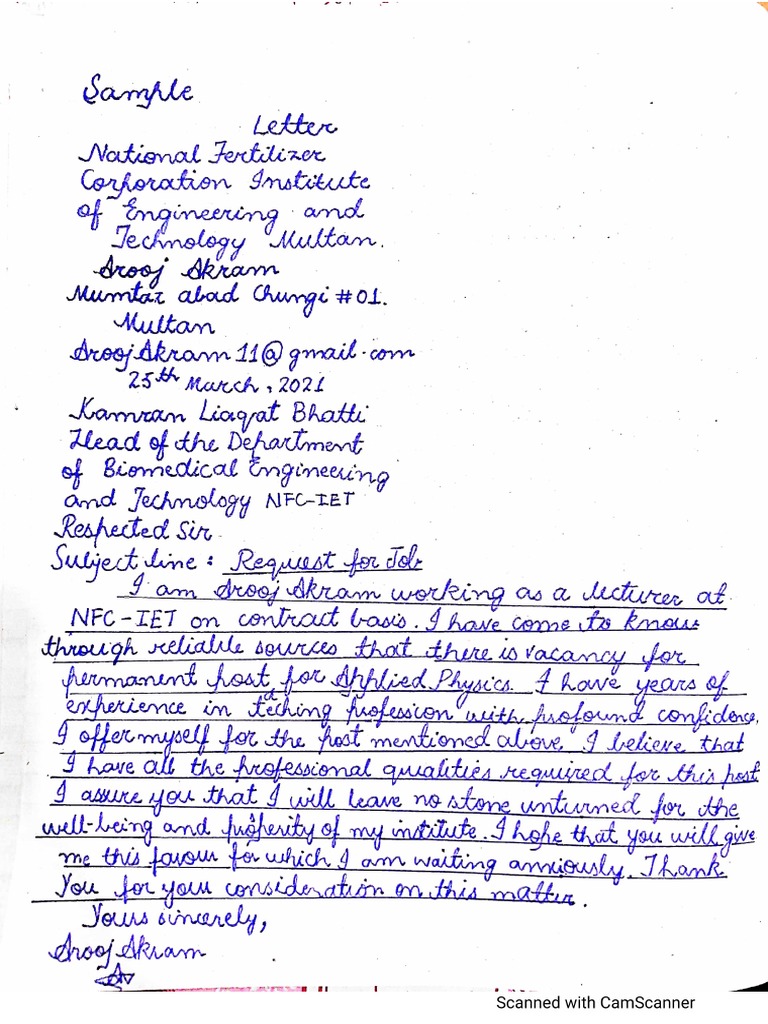 Sample
Letter
National Fertilizer
Corporation Institute
of Engineering and
Technology Multan.
Arooj Akram
Mumtaz abad Chungi #01.
Multan
AroojAkram11@gmail.com
25th March, 2021
Kamran Liaqat Bhatti
Head of the Department
of Biomedical Engineering
and Technology NFC-IET
Respected Sir
Subject line: Request for Job
I am Arooj Akram working as a lecturer at
NFC-IET on contract basis. I have come to know
through reliable sources that there is vacancy for
permanent post for Applied Physics. I have years of
experience in teaching profession with profound confidence,
I offer myself for the post mentioned above. I believe that
I have all the professional qualities required for this post
I assure you that I will leave no stone unturned for the
well-being and prosperity of my institute. I hope that you will give
me this favour for which I am waiting anxiously. Thank
You for your consideration on this matter.
Yours sincerely,
Arooj Akram
Scanned with CamScanner